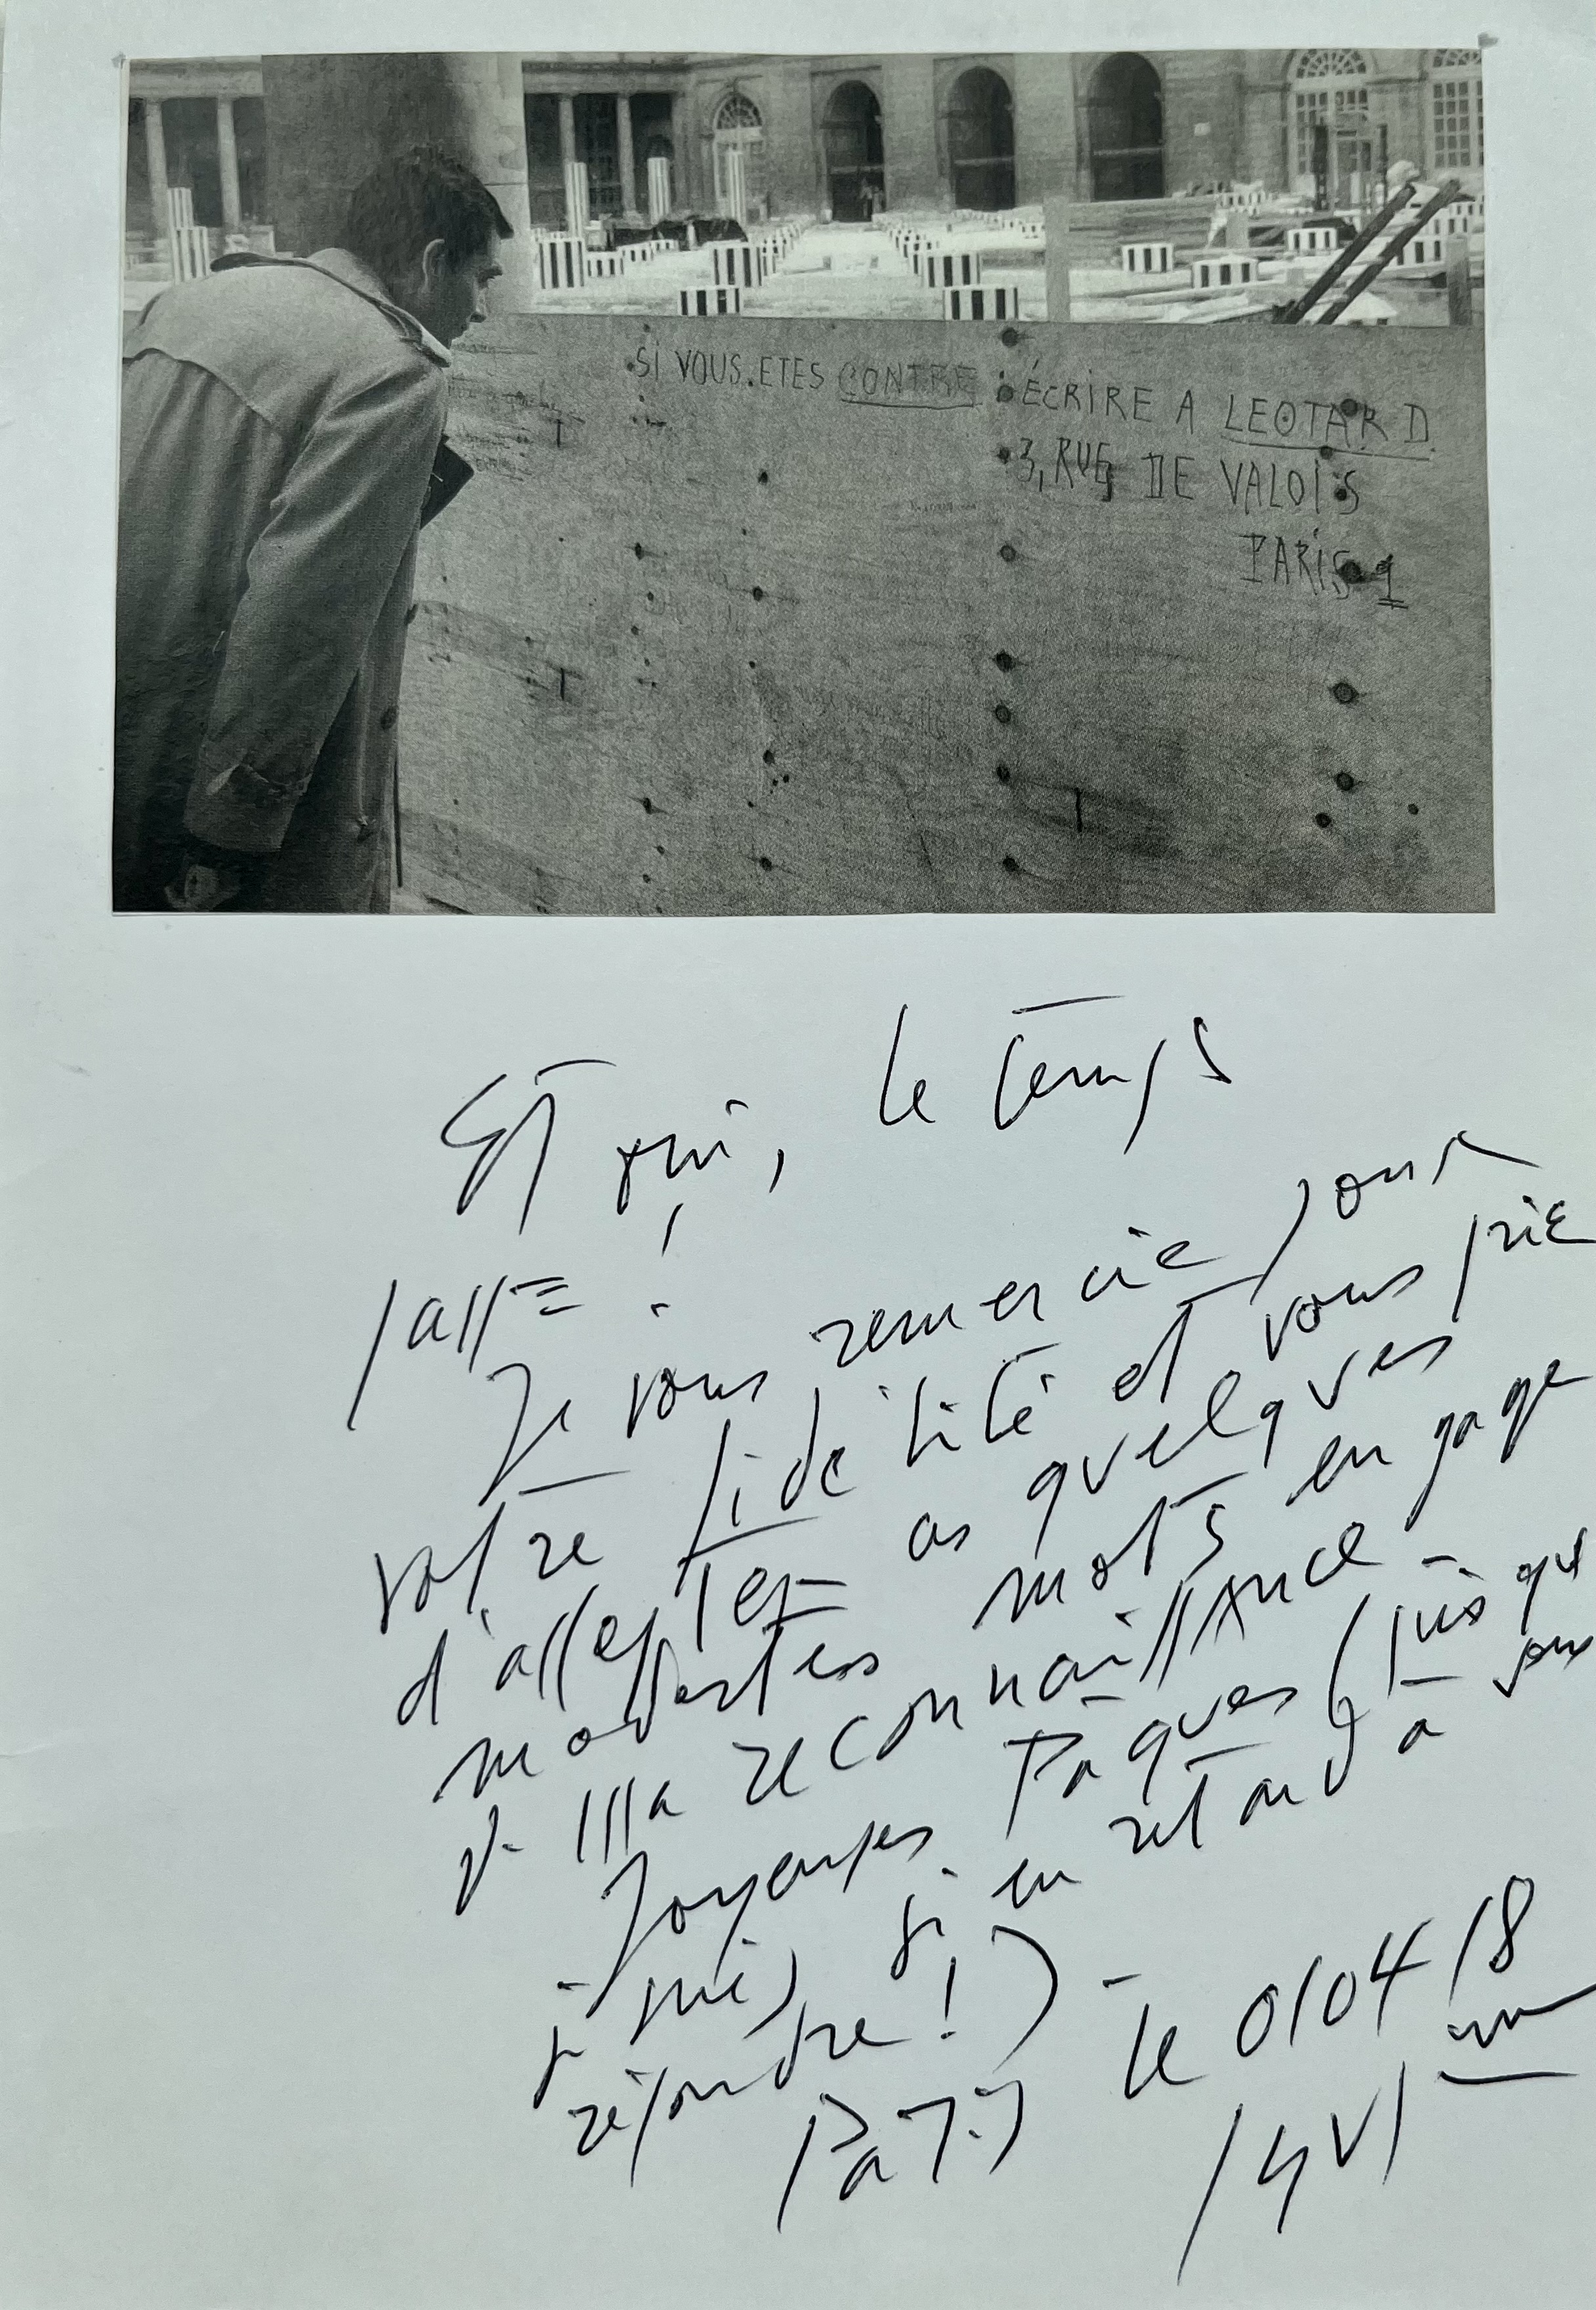 SI VOUS.ETES CONTRE
ÉCRIRE A LEOTARD
3, RUE DE VALOIS
PARIS 1
Et oui, le temps
passe !
Je vous remercie pour
votre fidélité et vous prie
d'accepter ces quelques
modestes mots en gage
de ma reconnaissance
Joyeuses Pâques (jusque
je suis si en retard à vous
répondre !) -
Paris le 01 04 18